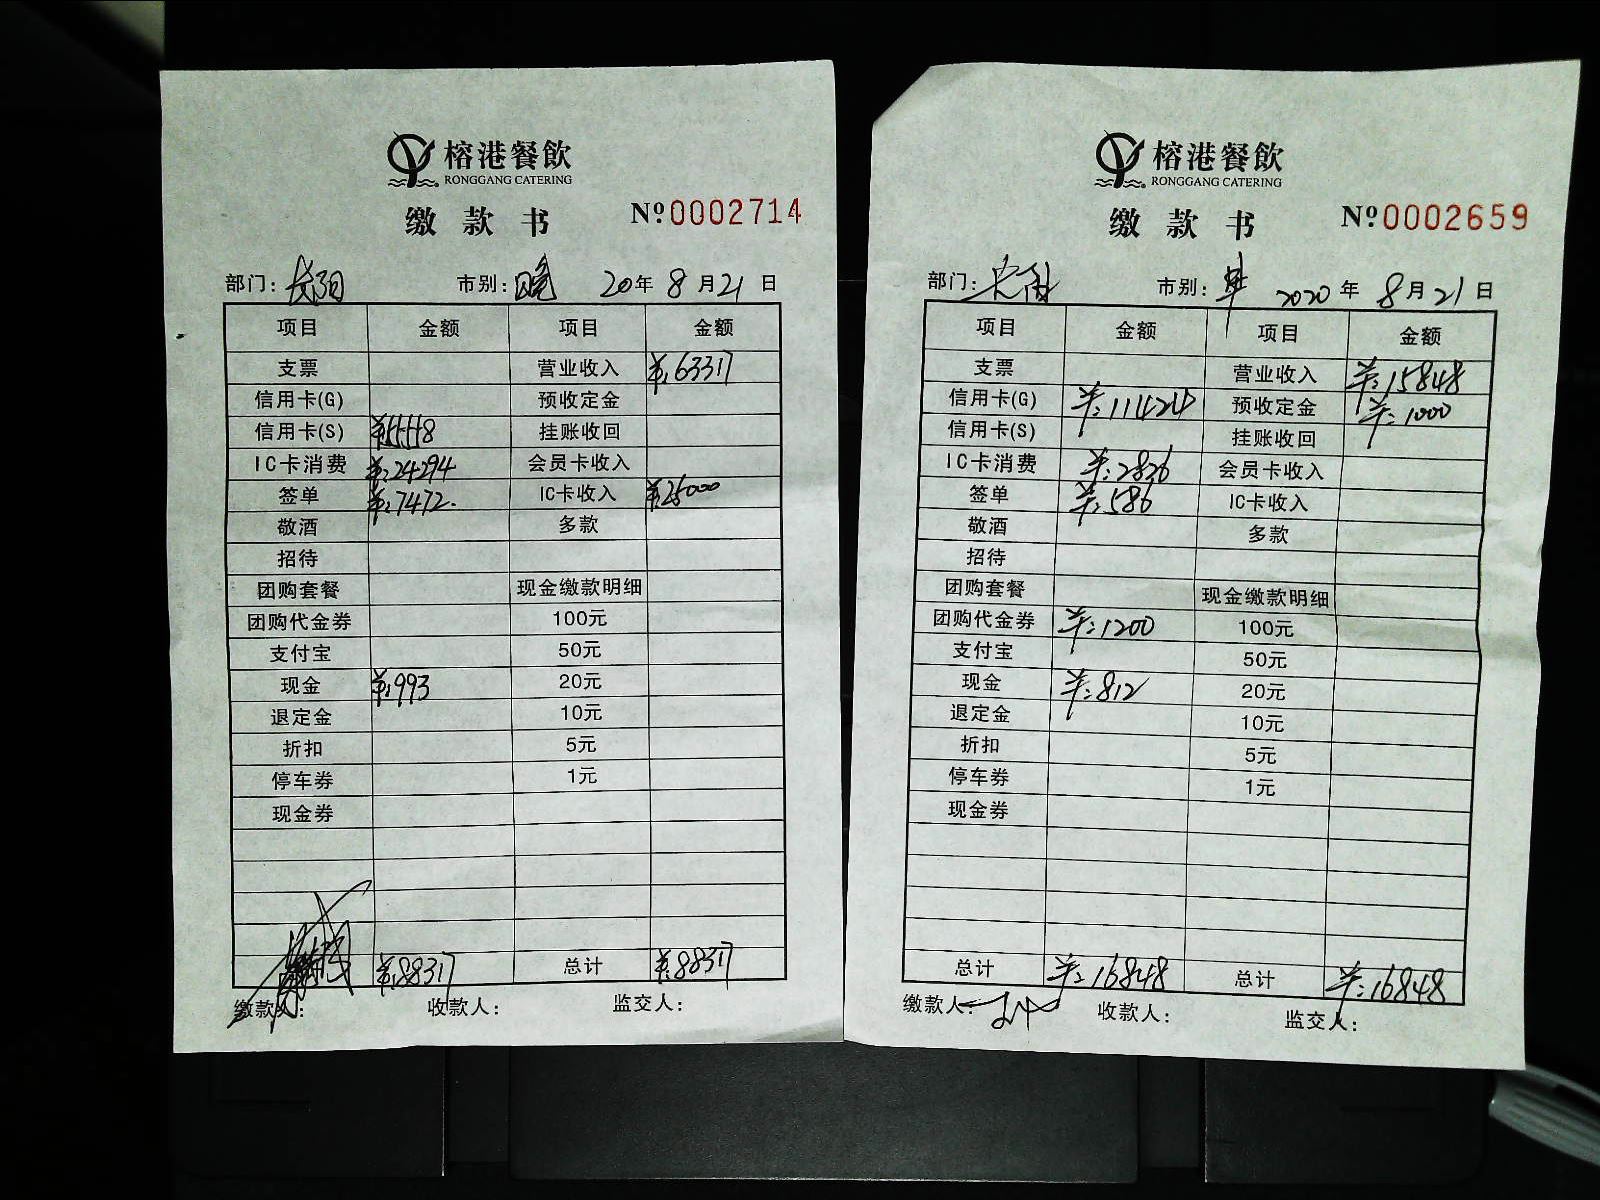 榕港餐飲
RONGGANG CATERING
缴款书 №0002714
部门: 长阳 市别: 晚 20年 8月21日
项目 金额 项目 金额
支票 营业收入 ¥:63317
信用卡(G) 预收定金
信用卡(S) ¥:55558 挂账收回
IC卡消费 ¥:24294 会员卡收入
签单 ¥:7472. IC卡收入 ¥:25000
敬酒 多款
招待
团购套餐 现金缴款明细
团购代金券 100元
支付宝 50元
现金 ¥:993 20元
退定金 10元
折扣 5元
停车券 1元
现金券
¥:88317 总计 ¥:88317
缴款人: 收款人: 监交人:
榕港餐飲
RONGGANG CATERING
缴款书 №0002659
部门: 市别: 2020年 8月21日
项目 金额 项目 金额
支票 营业收入 ¥:15848
信用卡(G) ¥:11424 预收定金 ¥:1000
信用卡(S) 挂账收回
IC卡消费 ¥:2826 会员卡收入
签单 ¥:586 IC卡收入
敬酒 多款
招待
团购套餐 现金缴款明细
团购代金券 ¥:1200 100元
支付宝 50元
现金 ¥:812 20元
退定金 10元
折扣 5元
停车券 1元
现金券
总计 ¥:16848 总计 ¥:16848
缴款人: 收款人: 监交人: